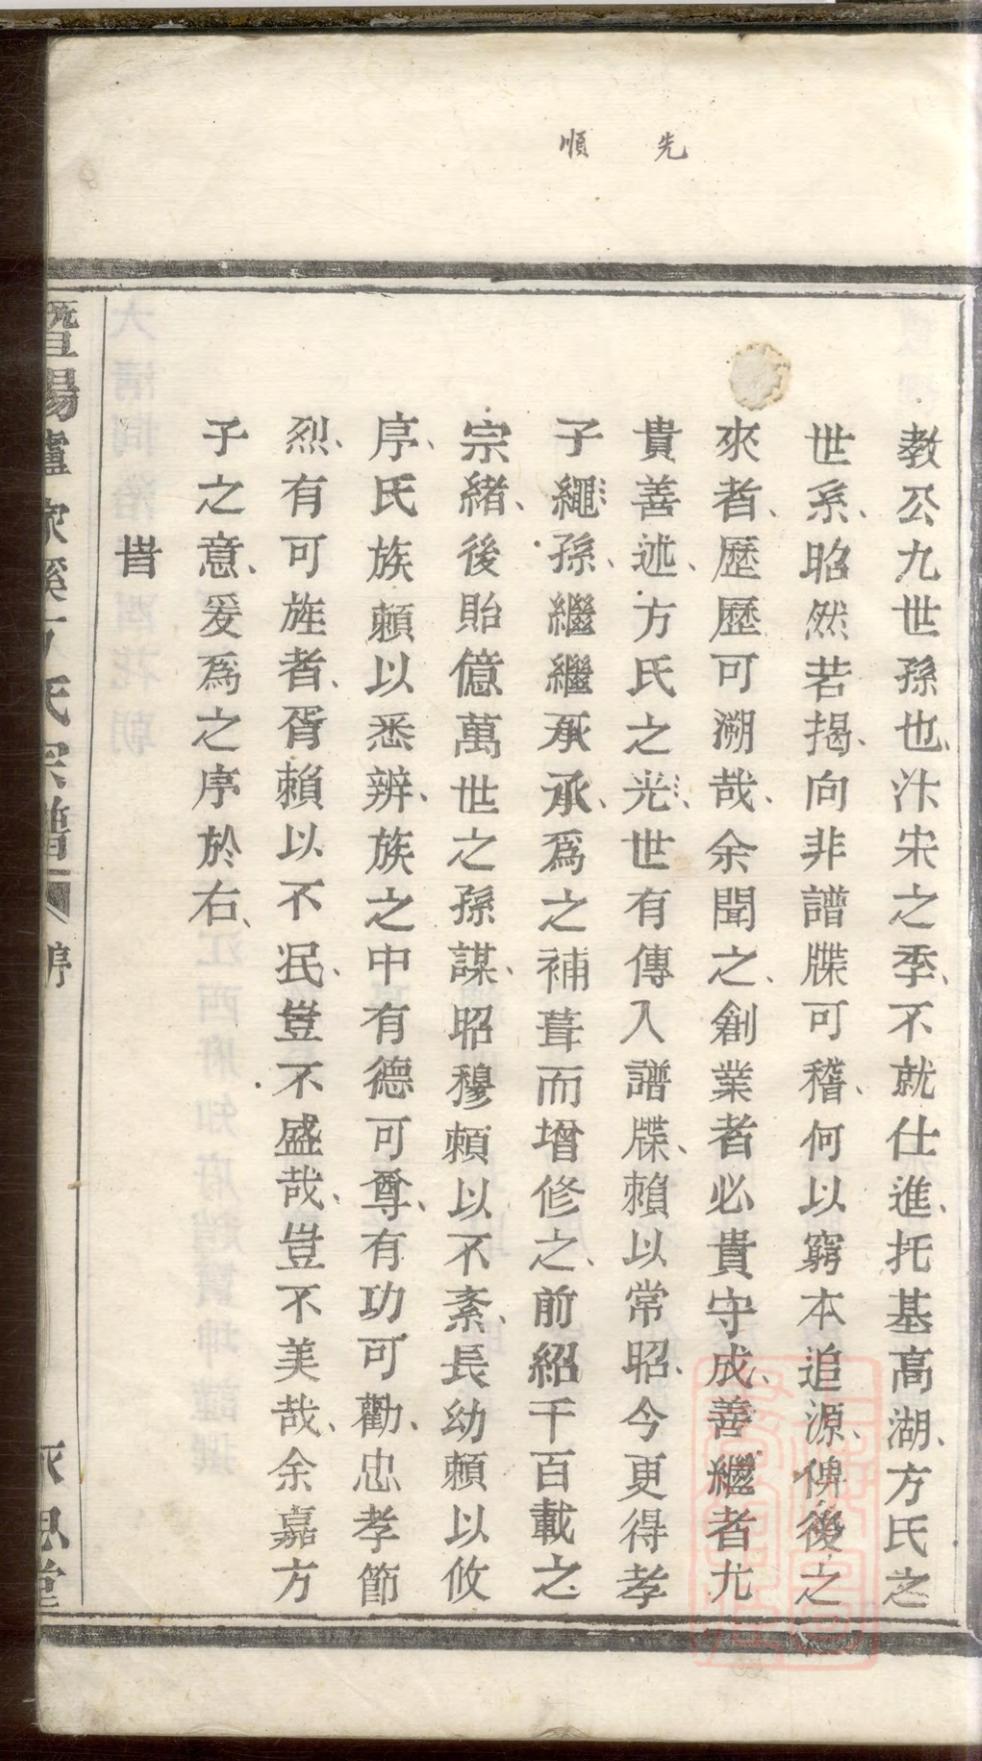 先順
教公九世孫也汴宋之季不就仕進托基高湖方氏之
世系昭然若揭向非譜牒可稽何以窮本追源俾後之
來者歷歷可溯哉余聞之創業者必貴守成善繼者尤
貴善述方氏之光世有傳人譜牒賴以常昭今更得孝
子繩孫繼繼承承爲之補葺而增修之前紹千百載之
宗緒後貽億萬世之孫謀昭穆賴以不紊長幼賴以攸
序氏族賴以悉辨族之中有德可尊有功可勸忠孝節
烈有可旌者胥賴以不泯豈不盛哉豈不美哉余嘉方
子之意爰爲之序於右
旹
暨陽 氏宗譜 序 思堂